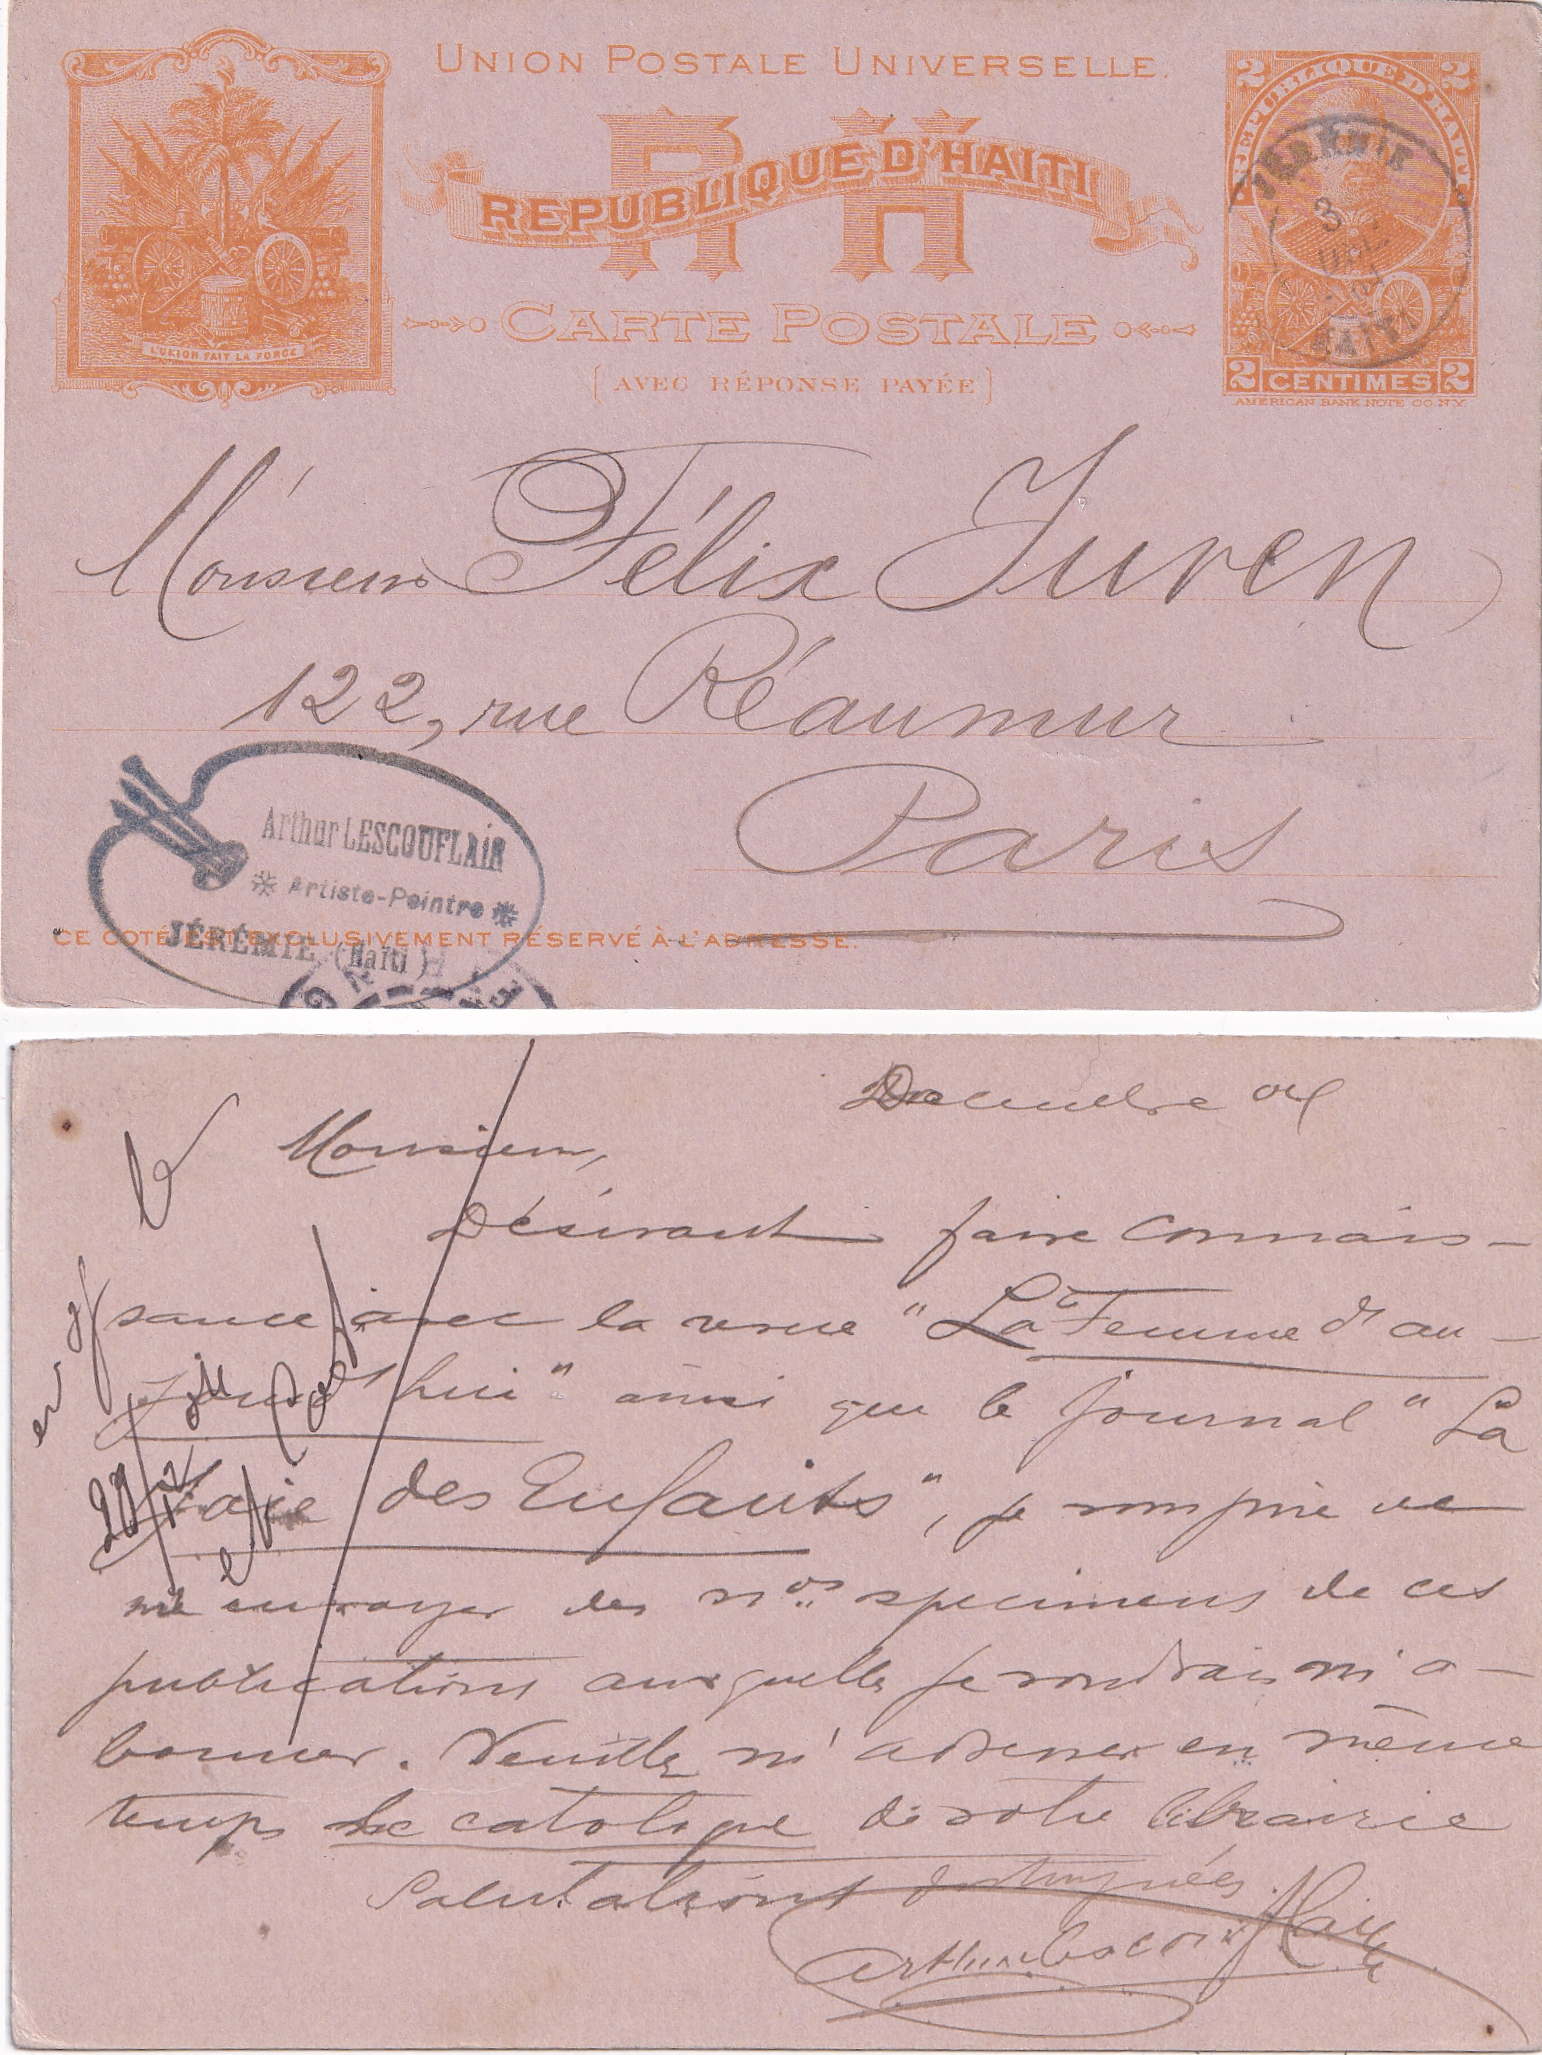 UNION POSTALE UNIVERSELLE.
RH
REPUBLIQUE D'HAITI
CARTE POSTALE
[AVEC RÉPONSE PAYÉE]
L'UNION FAIT LA FORCE
2 2
REPUBLIQUE D'HAITI
2 CENTIMES 2
AMERICAN BANK NOTE CO. N.Y.
JEREMIE
3
HAITI
Monsieur Félix Juven
122, rue Réaumur
Paris
Arthur LESCOUFLAIR
* Artiste-Peintre *
JÉRÉMIE (Haïti)
CE COTÉ EST EXCLUSIVEMENT RÉSERVÉ À L'ADRESSE.
Décembre 04
Monsieur,
Désirant faire connais-
sance avec la revue "La Femme d'au-
jourd'hui" ainsi que le journal "La
Joie des Enfants", je vous prie de
me envoyer des nos. specimens de ces
publications auxquelles je voudrais m'a-
bonner. Veuillez m'adresser en même
temps le catalogue de votre librairie
Salutations distinguées
Arthur Lescouflair